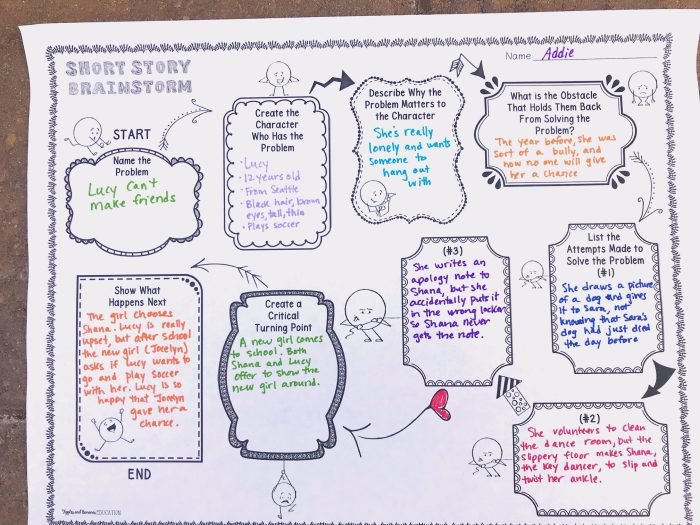 SHORT STORY
BRAINSTORM
Name Addie
START
Name the
Problem
Lucy can't
make friends
Create the
Character
Who Has the
Problem
• Lucy
• 12 years old
• From Seattle
• Black hair, brown
eyes, tall, thin
• Plays soccer
Describe Why the
Problem Matters to
the Character
She's really
lonely and wants
someone to
hang out
with
What is the Obstacle
That Holds Them Back
From Solving the
Problem?
The year before, she was
sort of a bully, and
now no one will give
her a chance
List the
Attempts Made to
Solve the Problem
(#1)
She draws a picture
of a dog and gives
it to Sara, not
knowing that Sara's
dog had just died
the day before
(#2)
She volunteers to clean
the dance room, but the
slippery floor makes Shana,
the key dancer, to slip and
twist her ankle.
(#3)
She writes an
apology note to
Shana, but she
accidentally puts it
in the wrong locker
so Shana never
gets the note.
Create a
Critical
Turning Point
A new girl comes
to school. Both
Shana and Lucy
offer to show the
new girl around.
Show What
Happens Next
The girl chooses
Shana. Lucy is really
upset, but after school
the new girl (Jocelyn)
asks if Lucy wants to
go and play soccer
with her. Lucy is so
happy that Jocelyn
gave her a
chance.
END
Apples and Bananas EDUCATION